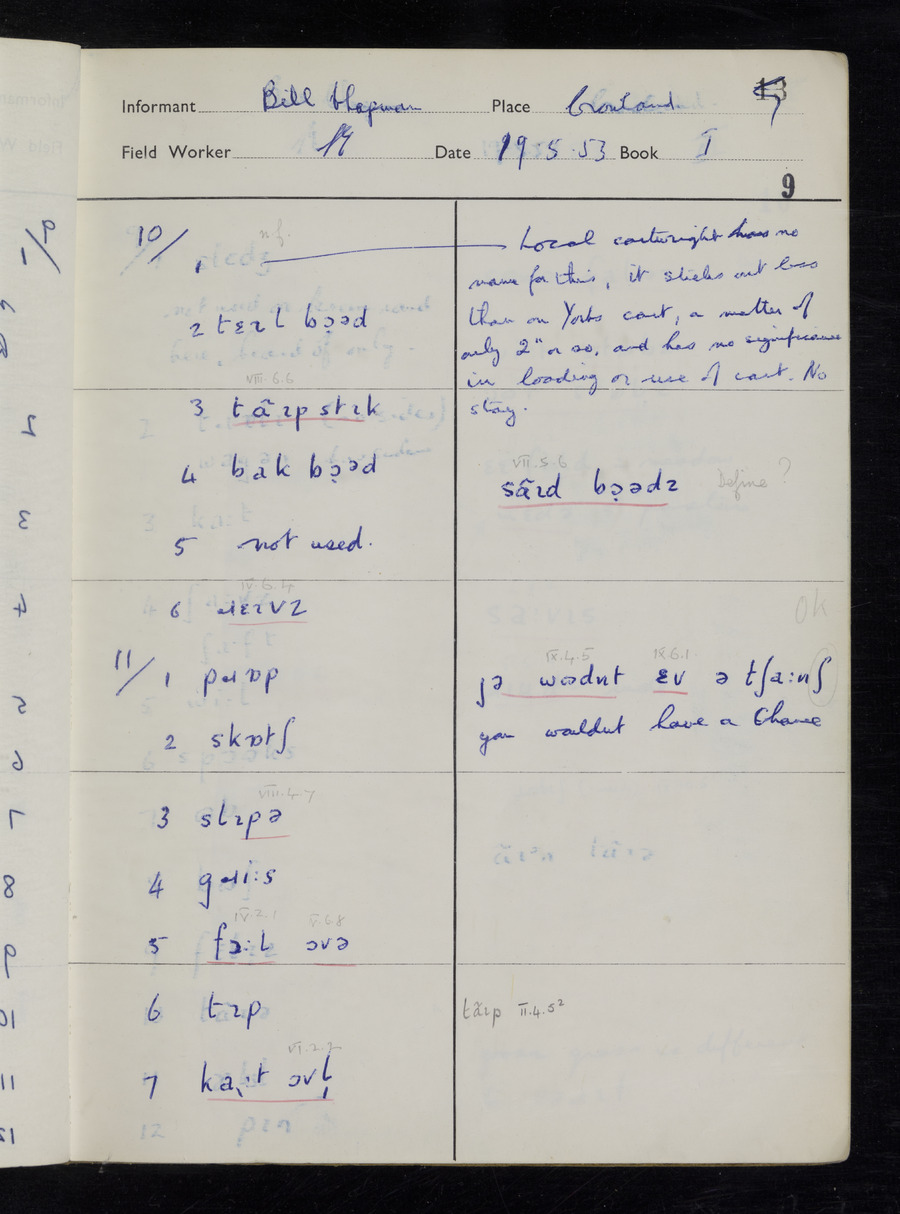 Informant Bill Place Crowland
Field Worker Date 19 5 53 Book I
9
10/ n.f.
1
2 tɛɪl bɔ̣əd
VIII.6.6
3 tãɪp stɪk
4 bak bɔ̣əd
5 not used.
IV.6.4
6 ɹɛɪvz
11/ 1 pɹɒp
2 skɒtʃ
VIII.4.7
3 slɪpə
4 gɹi:s
IV.2.1 V.6.8
5 fɔ:l ɔvə
6 tɪp
VI.2.2
7 ka:t ɔvl̩
Local cartwright has no
name for this, it sticks out less
than on Yorks cart, a matter of
only 2" or so, and has no significance
in loading or use of cart. No
stay.
VII.5.6
sãɪd bɔ̣ədz Define?
OK
IX.4.5 IX.6.1
jə wʊdnt ɛv ə tʃa:nʃ
you wouldnt have a Chance
tãɪp II.4.5²